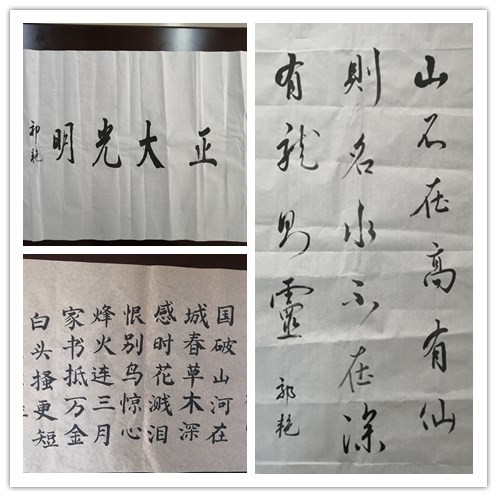 正大光明
郭艳
国破山河在
城春草木深
感时花溅泪
恨别鸟惊心
烽火连三月
家书抵万金
白头搔更短
山不在高有仙
則名水不在深
有龍则靈
郭艳